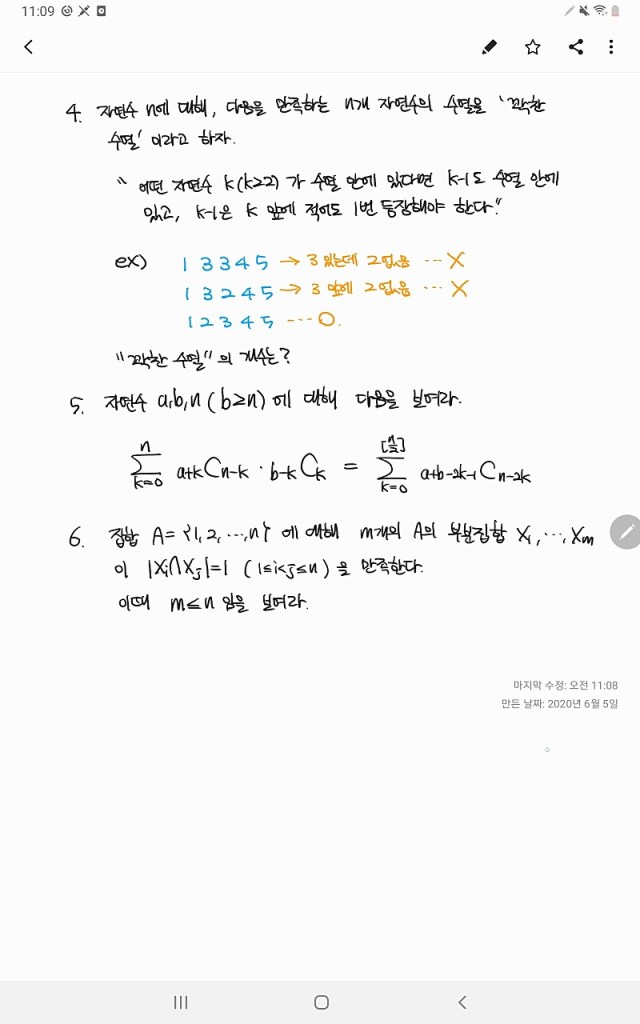 11:09
4. 자연수 n에 대해, 다음을 만족하는 n개 자연수의 수열을 '꽉찬
수열' 이라고 하자.
"어떤 자연수 k(k≥2)가 수열 안에 있다면 k-1도 수열 안에
있고, k-1은 k 앞에 적어도 1번 등장해야 한다."
ex) 1 3 3 4 5 → 3 있는데 2 없음 ... X
1 3 2 4 5 → 3 앞에 2 없음 ... X
1 2 3 4 5 ... O.
"꽉찬 수열"의 개수는?
5. 자연수 a,b,n (b≥n)에 대해 다음을 보여라.
n [n/2]
∑ a+kCn-k · b-kCk = ∑ a+b-2k-1Cn-2k
k=0 k=0
6. 집합 A={1,2,…,n}에 대해 m개의 A의 부분집합 X₁,…,Xm
이 |Xi∩Xj|=1 (1≤i<j≤n)을 만족한다.
이때 m≤n 임을 보여라.
마지막 수정: 오전 11:08
만든 날짜: 2020년 6월 5일